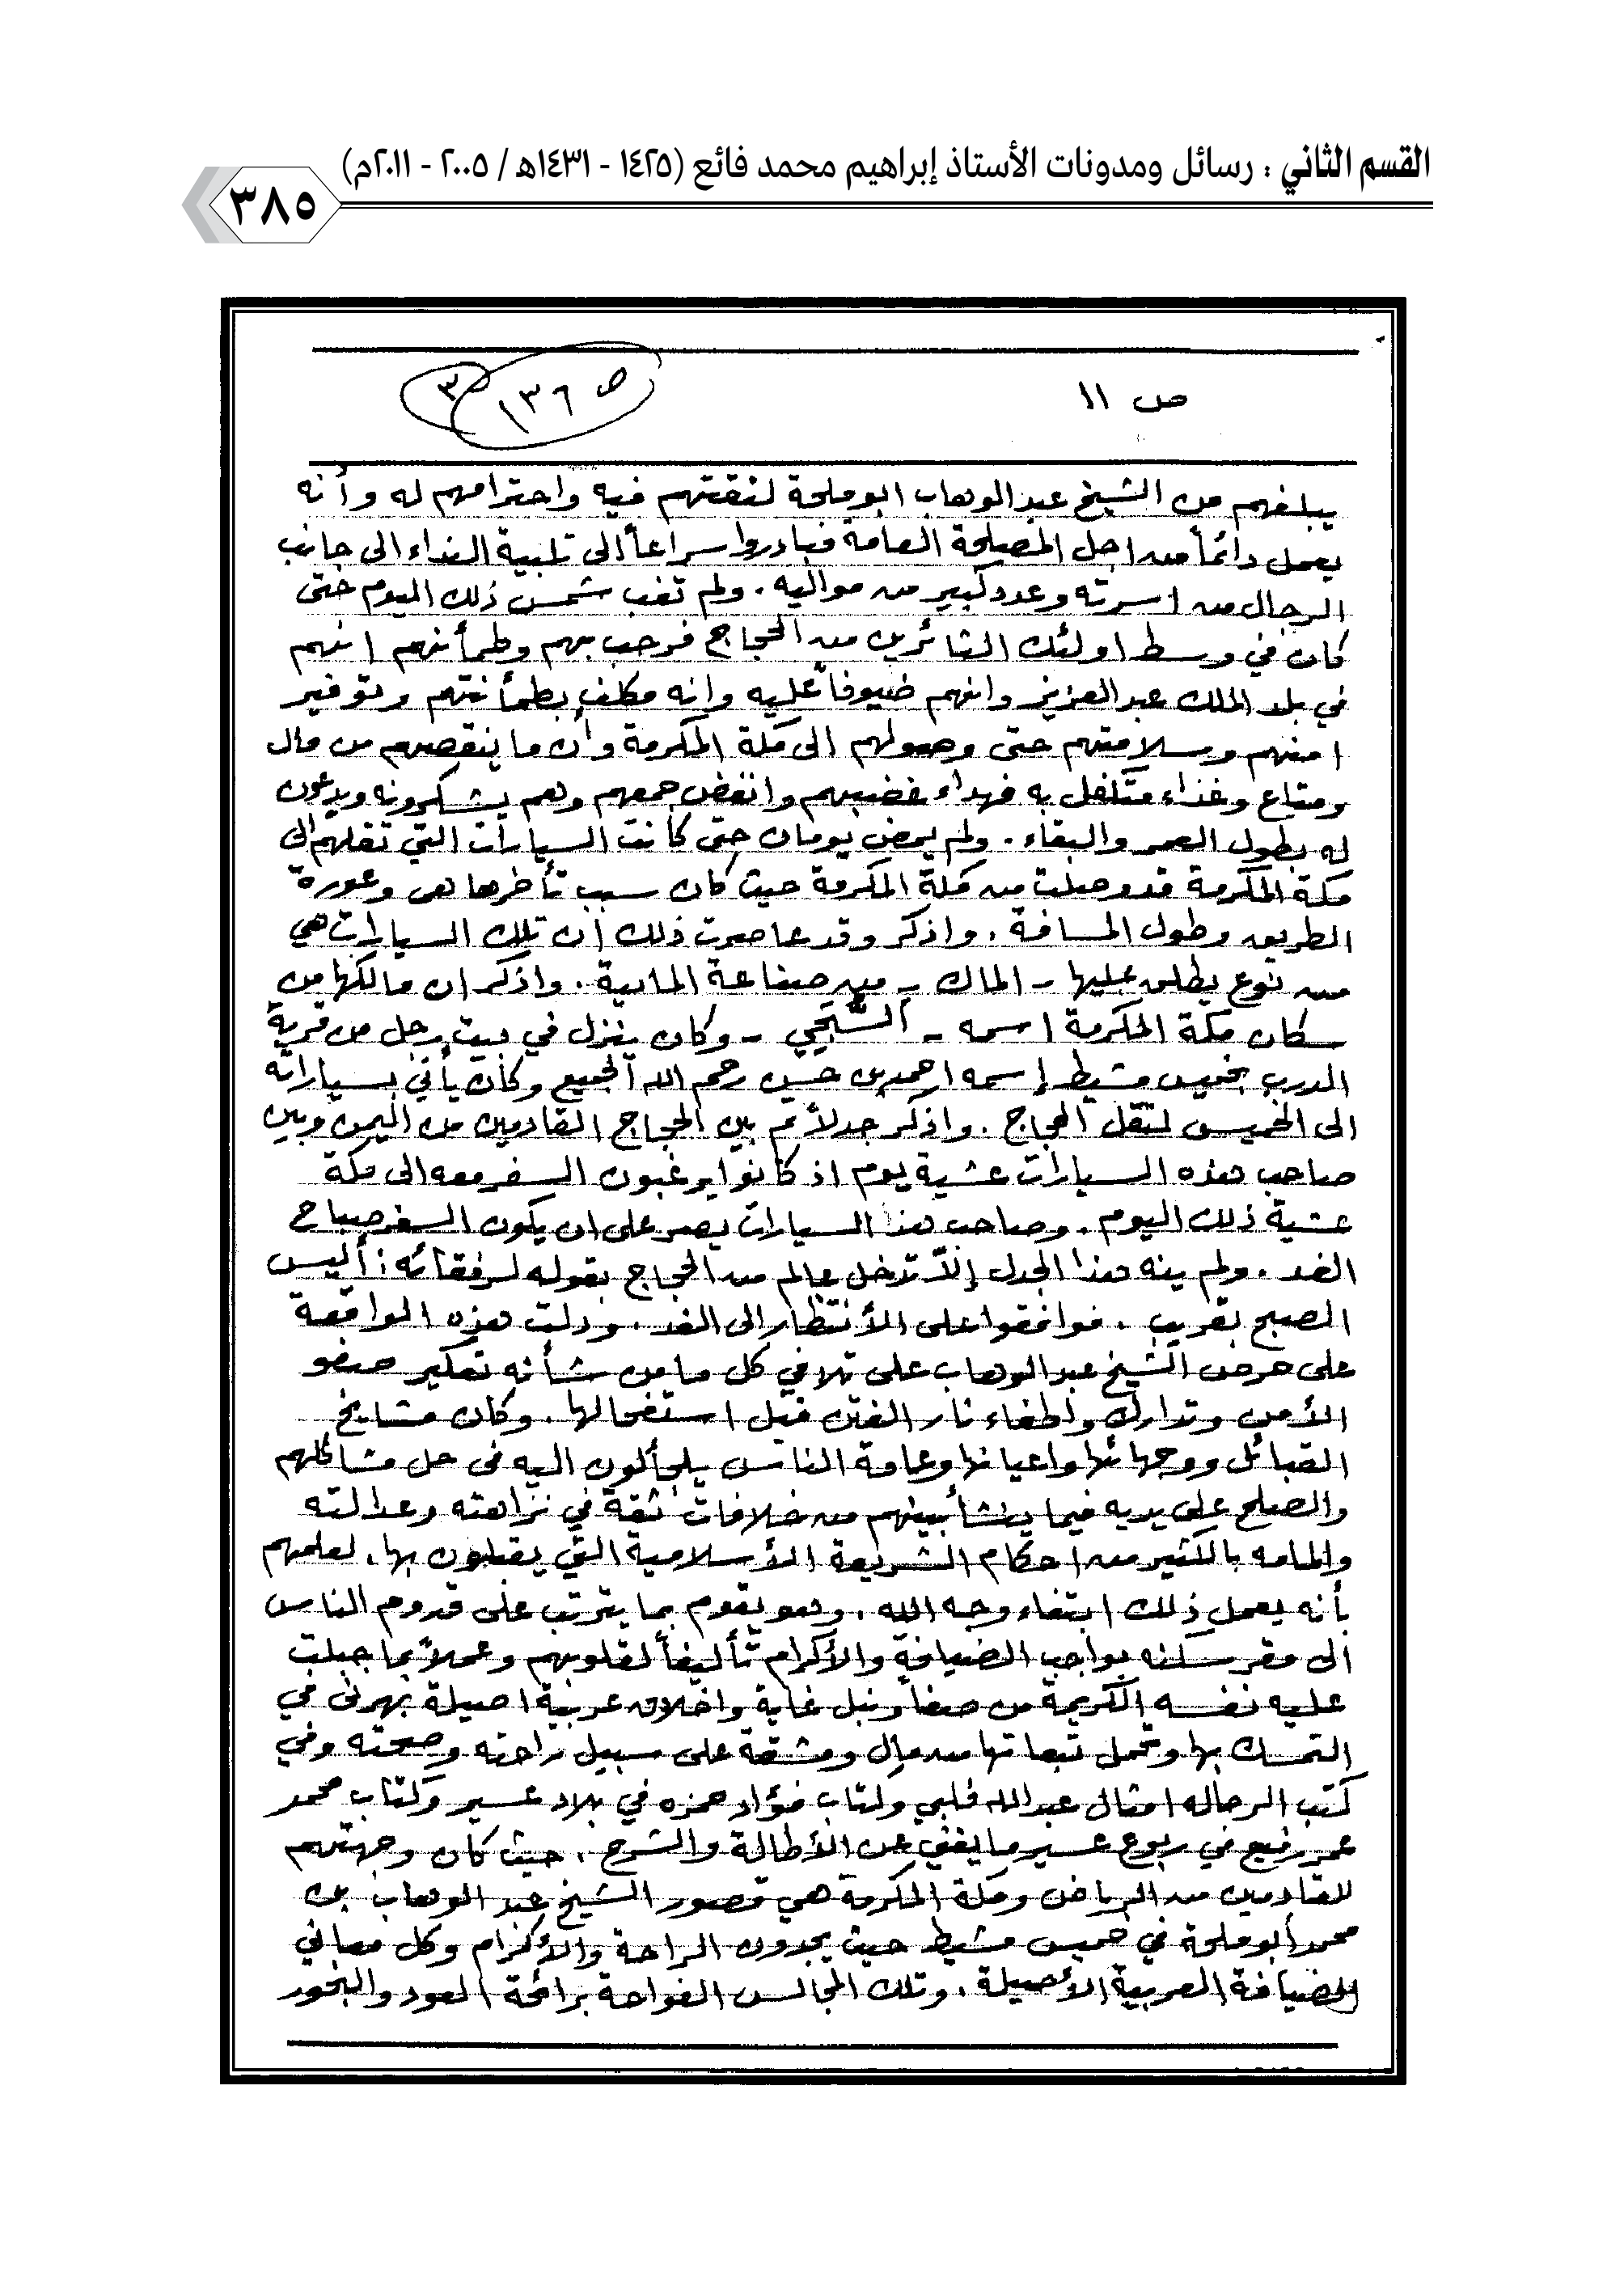 القسم الثاني : رسائل ومدونات الأستاذ إبراهيم محمد فائع (١٤٢٥ - ١٤٣١هـ / ٢٠٠٥ - ٢٠١١م)
٣٨٥
ص ١١
ص ١٣٦
٣
يبلغهم من الشيخ عبدالوهاب ابوملحة لثقتهم فيه واحترامهم له وأنه
يعمل دائماً من اجل المصلحة العامة فبادروا سراعاً إلى تلبية النداء الى جانب
الرجال من اسرته وعدد كبير من مواليه . ولم تغب شمس ذلك اليوم حتى
كان في وسط اولئك الثائرين من الحجاج فرحب بهم وطمأنهم انهم
في بلد الملك عبدالعزيز وانهم ضيوفاً عليه وانه مكلف بطمأنتهم وتوفير
امنهم وسلامتهم حتى وصولهم الى مكة المكرمة وأن ما ينقصهم من مال
ومتاع وغذاء متكفل به فهداء غضبهم وانفض جمعهم وهم يشكرونه ويدعون
له بطول العمر والبقاء . ولم يمض يومان حتى كانت السيارات التي تقلهم الى
مكة المكرمة قد وصلت من مكة المكرمة حيث كان سبب تأخرها هي وعورة
الطريق وطول المسافة . واذكر وقد عاصرت ذلك أن تلك السيارات هي
من نوع يطلق عليها - الماك - من صناعة المانية . واذكر ان مالكها من
سكان مكة المكرمة اسمه - - وكان ينزل في بيت رجل من قرية
الدرب بخميس مشيط إسمه احمد بن حسن رحم الله الجميع وكان يأتي بسياراته
الى الخميس لنقل الحجاج . واذكر جدلاً تم بين الحجاج القادمين من اليمن وبين
صاحب هذه السيارات عشية يوم اذ كانوا يرغبون السفر معه الى مكة
عشية ذلك اليوم . وصاحب هذا السيارات يصر على ان يكون السفر صباح
الغد . ولم ينه هذا الجدل إلاّ تدخل عالم من الحجاج بقوله لرفقائه : أليس
الصبح بقريب . فوافقوا على الأنتظار الى الغد . ودلت هذه الواقعة
على حرص الشيخ عبدالوهاب على تلافي كل ما من شأنه تعكير صفو
الأمن وتدارك واطفاء نار الفتن قبل استفحالها . وكان مشايخ
القبائل ووجهائها واعيانها وعامة الناس يلجألون اليه في حل مشاكلهم
والصلح على يديه فيما ينشأ بينهم من خلافات ثقة في نزاهته وعدالته
والمامه بالكثير من احكام الشريعة الأسلامية التي يقبلون بها . لعلمهم
بأنه يعمل ذلك ابتغاء وجه الله . وهو يقوم بما يترتب على قدوم الناس
الى مقر سكنه بواجب الضيافة والأكرام تأليفاً لقلوبهم وعملاً بما جبلت
عليه نفسه الكريمة من صفاء ونبل غاية واخلاق عربية اصيلة في
التمسك بها وتحمل تبعاتها من مال ومشقة على سبيل راحته وصحته وفي
كتب الرحاله امثال عبدالله فلبي وكتاب فؤاد حمزه في بلاد عسير وكتاب محمد
عمر رفيع في ربوع عسير ما يغني عن الأطالة والشرح . حيث كان وجهتهم
للقادمين من الرياض ومكة المكرمة هي قصور الشيخ عبد الوهاب بن
محمد أبوملحة في خميس مشيط حيث يجدون الراحة والأكرام وكل معاني
الضيافة العربية الأصيلة . وتلك المجالس الفواحة برائحة العود والبخور